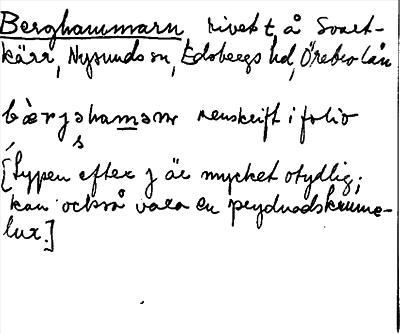 Berghammarn, rivet t. å Svart-
kärr, Nysunds sn, Edsbergs hd, Örebro län
bærjshamarn renskrift i folio
s
[typen efter j är mycket otydlig;
kan också vara en prydnadskrume-
lur.]